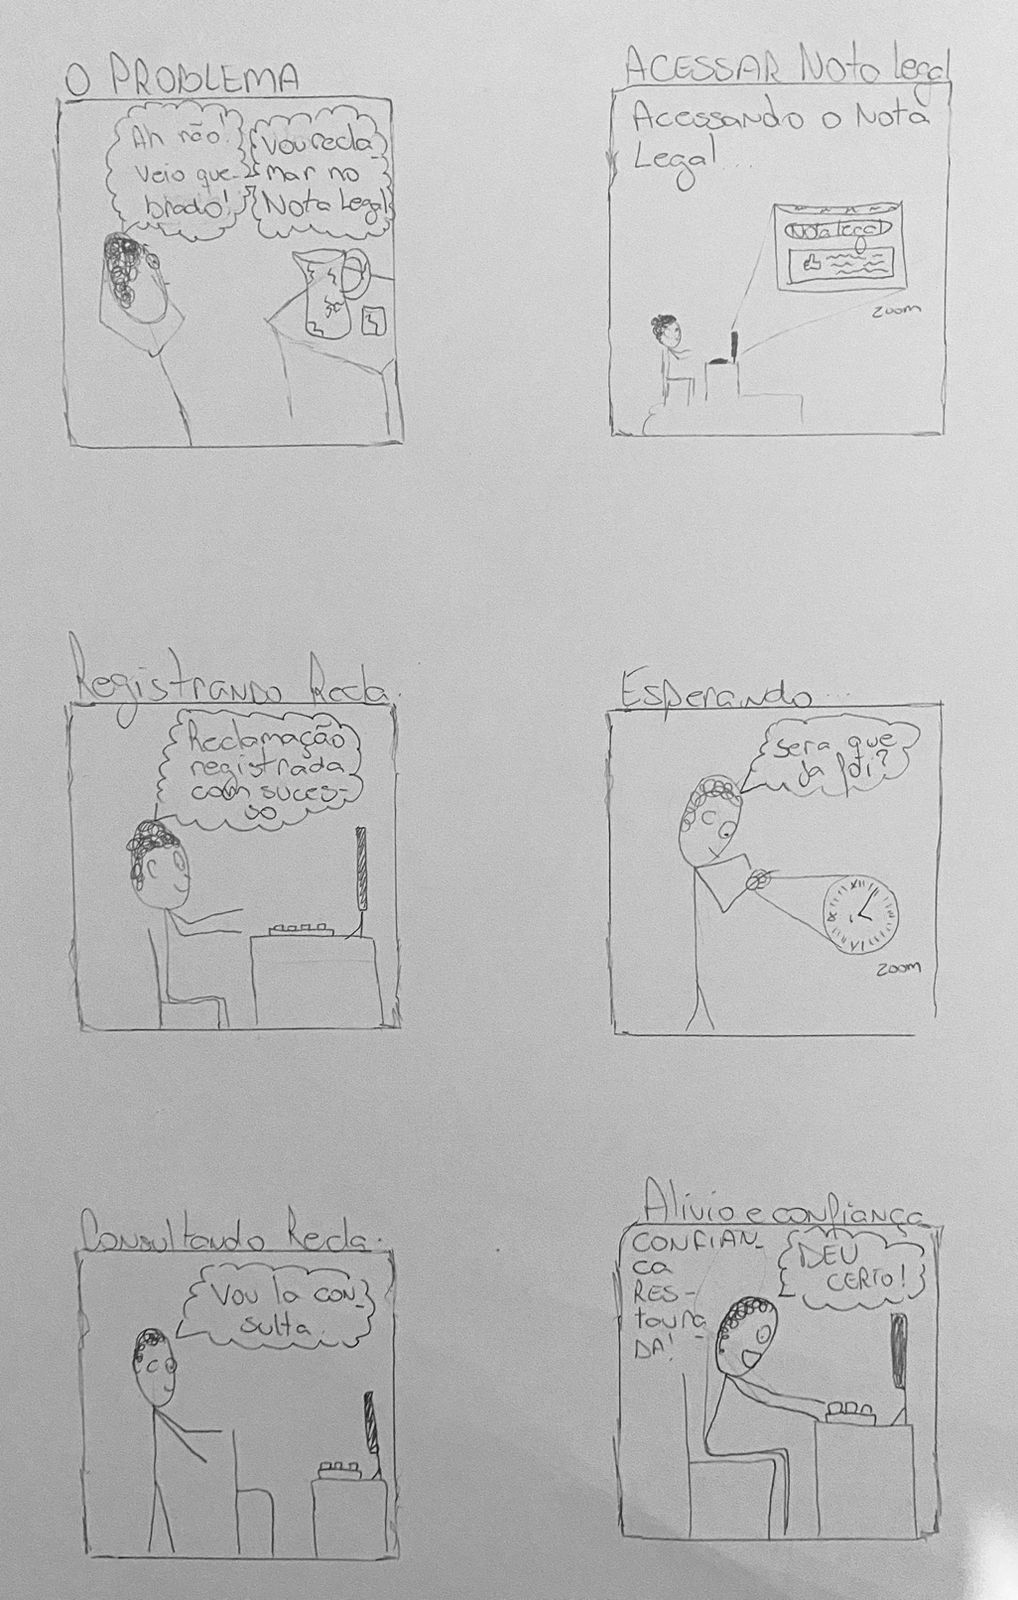 O PROBLEMA
Ah não!
Veio que-
brado!
Vou recla-
mar no
Nota Legal
ACESSAR Nota legal
Acessando o Nota
Legal...
Nota legal
zoom
Registrando Recla.
Reclamação
registrada
com suces-
so
Esperando...
sera que
ja foi?
XII
III
VI
IX
zoom
Consultando Recla.
Vou la con-
sulta.
Alivio e confiança
CONFIAN-
CA
RES-
TauRA
DA!
DEU
CERTO!